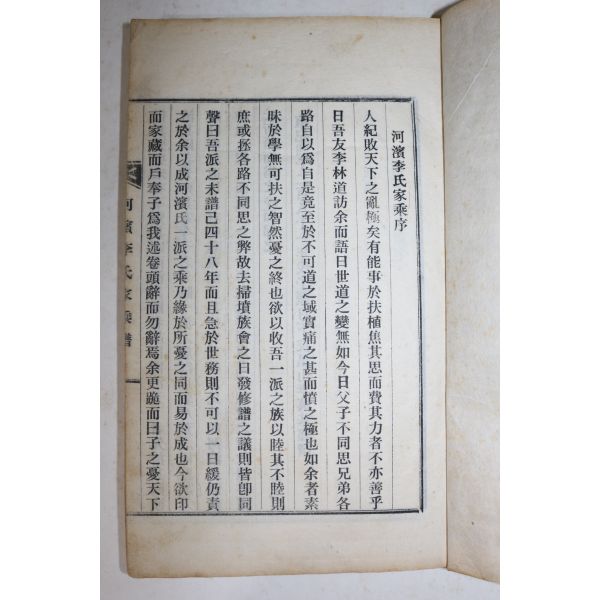 河濱李氏家乘序
人紀敗天下之亂極矣有能事於扶植焦其思而費其力者不亦善乎
日吾友李林道訪余而語曰世道之變無如今日父子不同思兄弟各
路自以爲自是竟至於不可道之域實痛之甚而憤之極也如余者素
昧於學無可扶之智然憂之終也欲以收吾一派之族以睦其不睦則
庶或拯各路不同思之弊故去掃墳族會之日發修譜之議則皆卽同
聲曰吾派之未譜已四十八年而且急於世務則不可以一日緩仍責
之於余以成河濱氏一派之乘乃緣於所憂之同而易於成也今欲印
而家藏而戶奉子爲我述卷頭辭而勿辭焉余更跪而曰子之憂天下
河濱李氏家乘譜